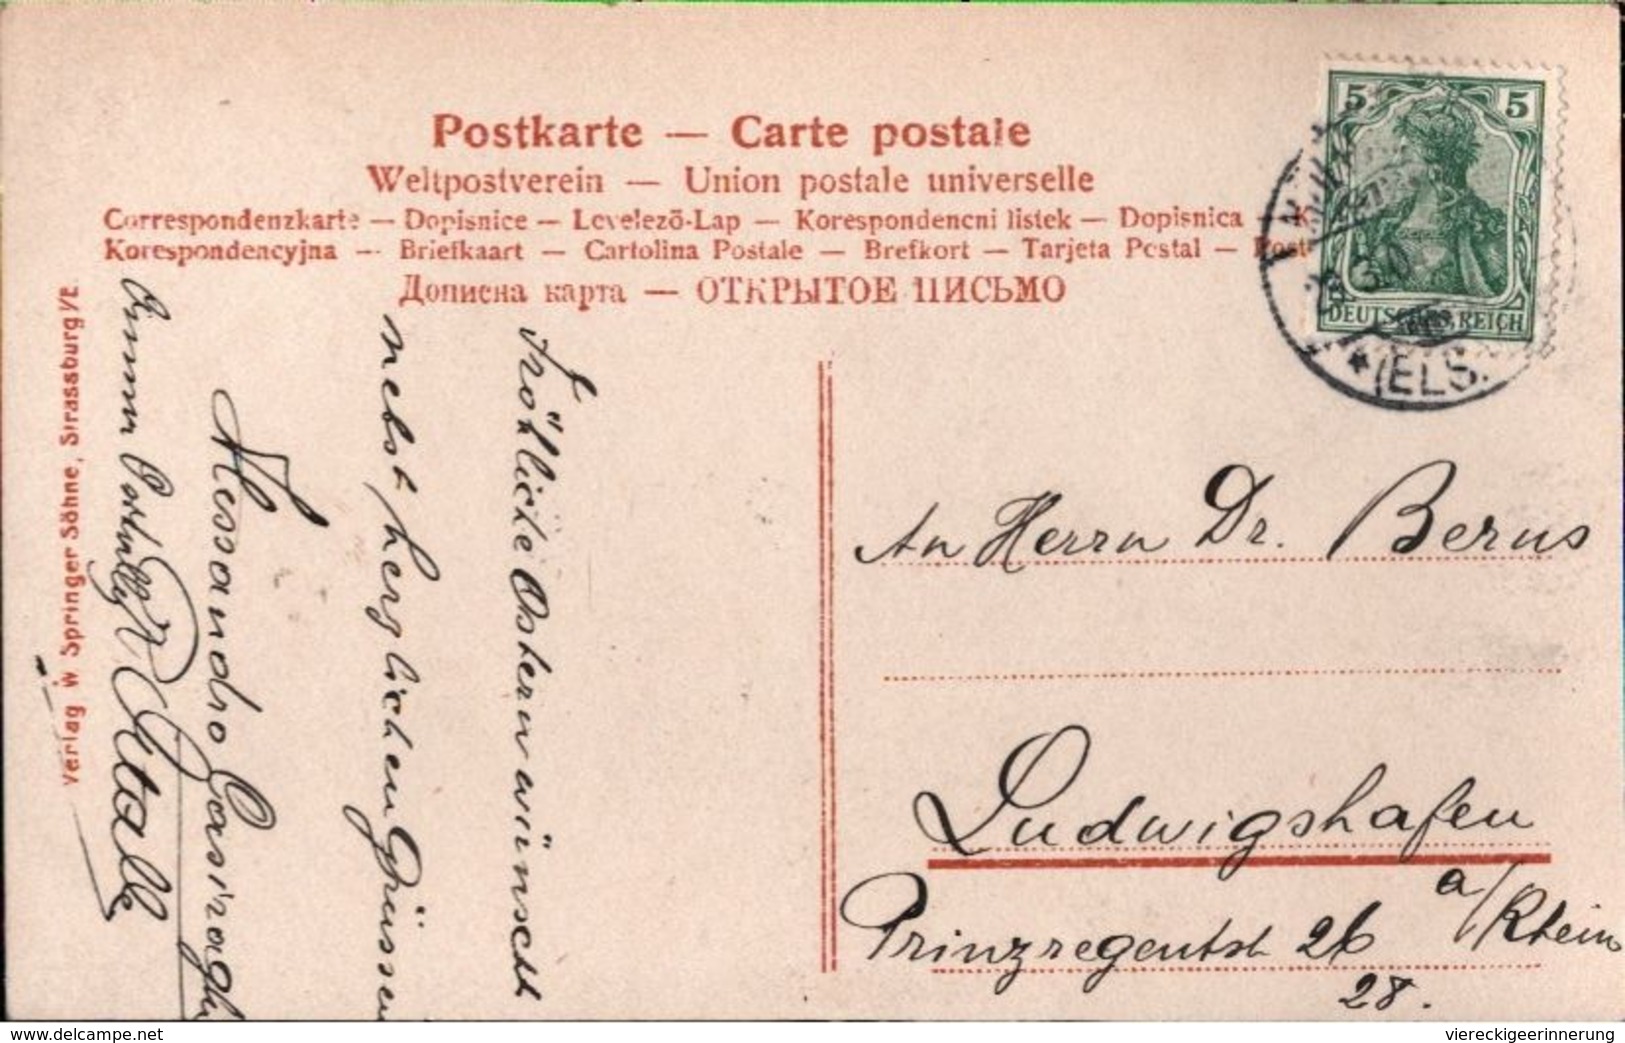 Postkarte — Carte postale
Weltpostverein — Union postale universelle
Correspondenzkarte — Dopisnice — Levelező-Lap — Korespondencni listek — Dopisnica — K
Korespondencyjna — Briefkaart — Cartolina Postale — Brefkort — Tarjeta Postal — Post
Дописна карта — ОТКРЫТОЕ ПИСЬМО
5 5
DEUTSCHES REICH
* (ELS.
An Herrn Dr. Berus
Ludwigshafen
a/Rhein
Prinzregentst 26
28.
Fröhliche Ostern wünscht
nebst herzlichen Grüssen
Alessandro Casiraghi
Verlag W Springer Söhne, Strassburg I/E
www.delcampe.net
viereckigeerinnerung